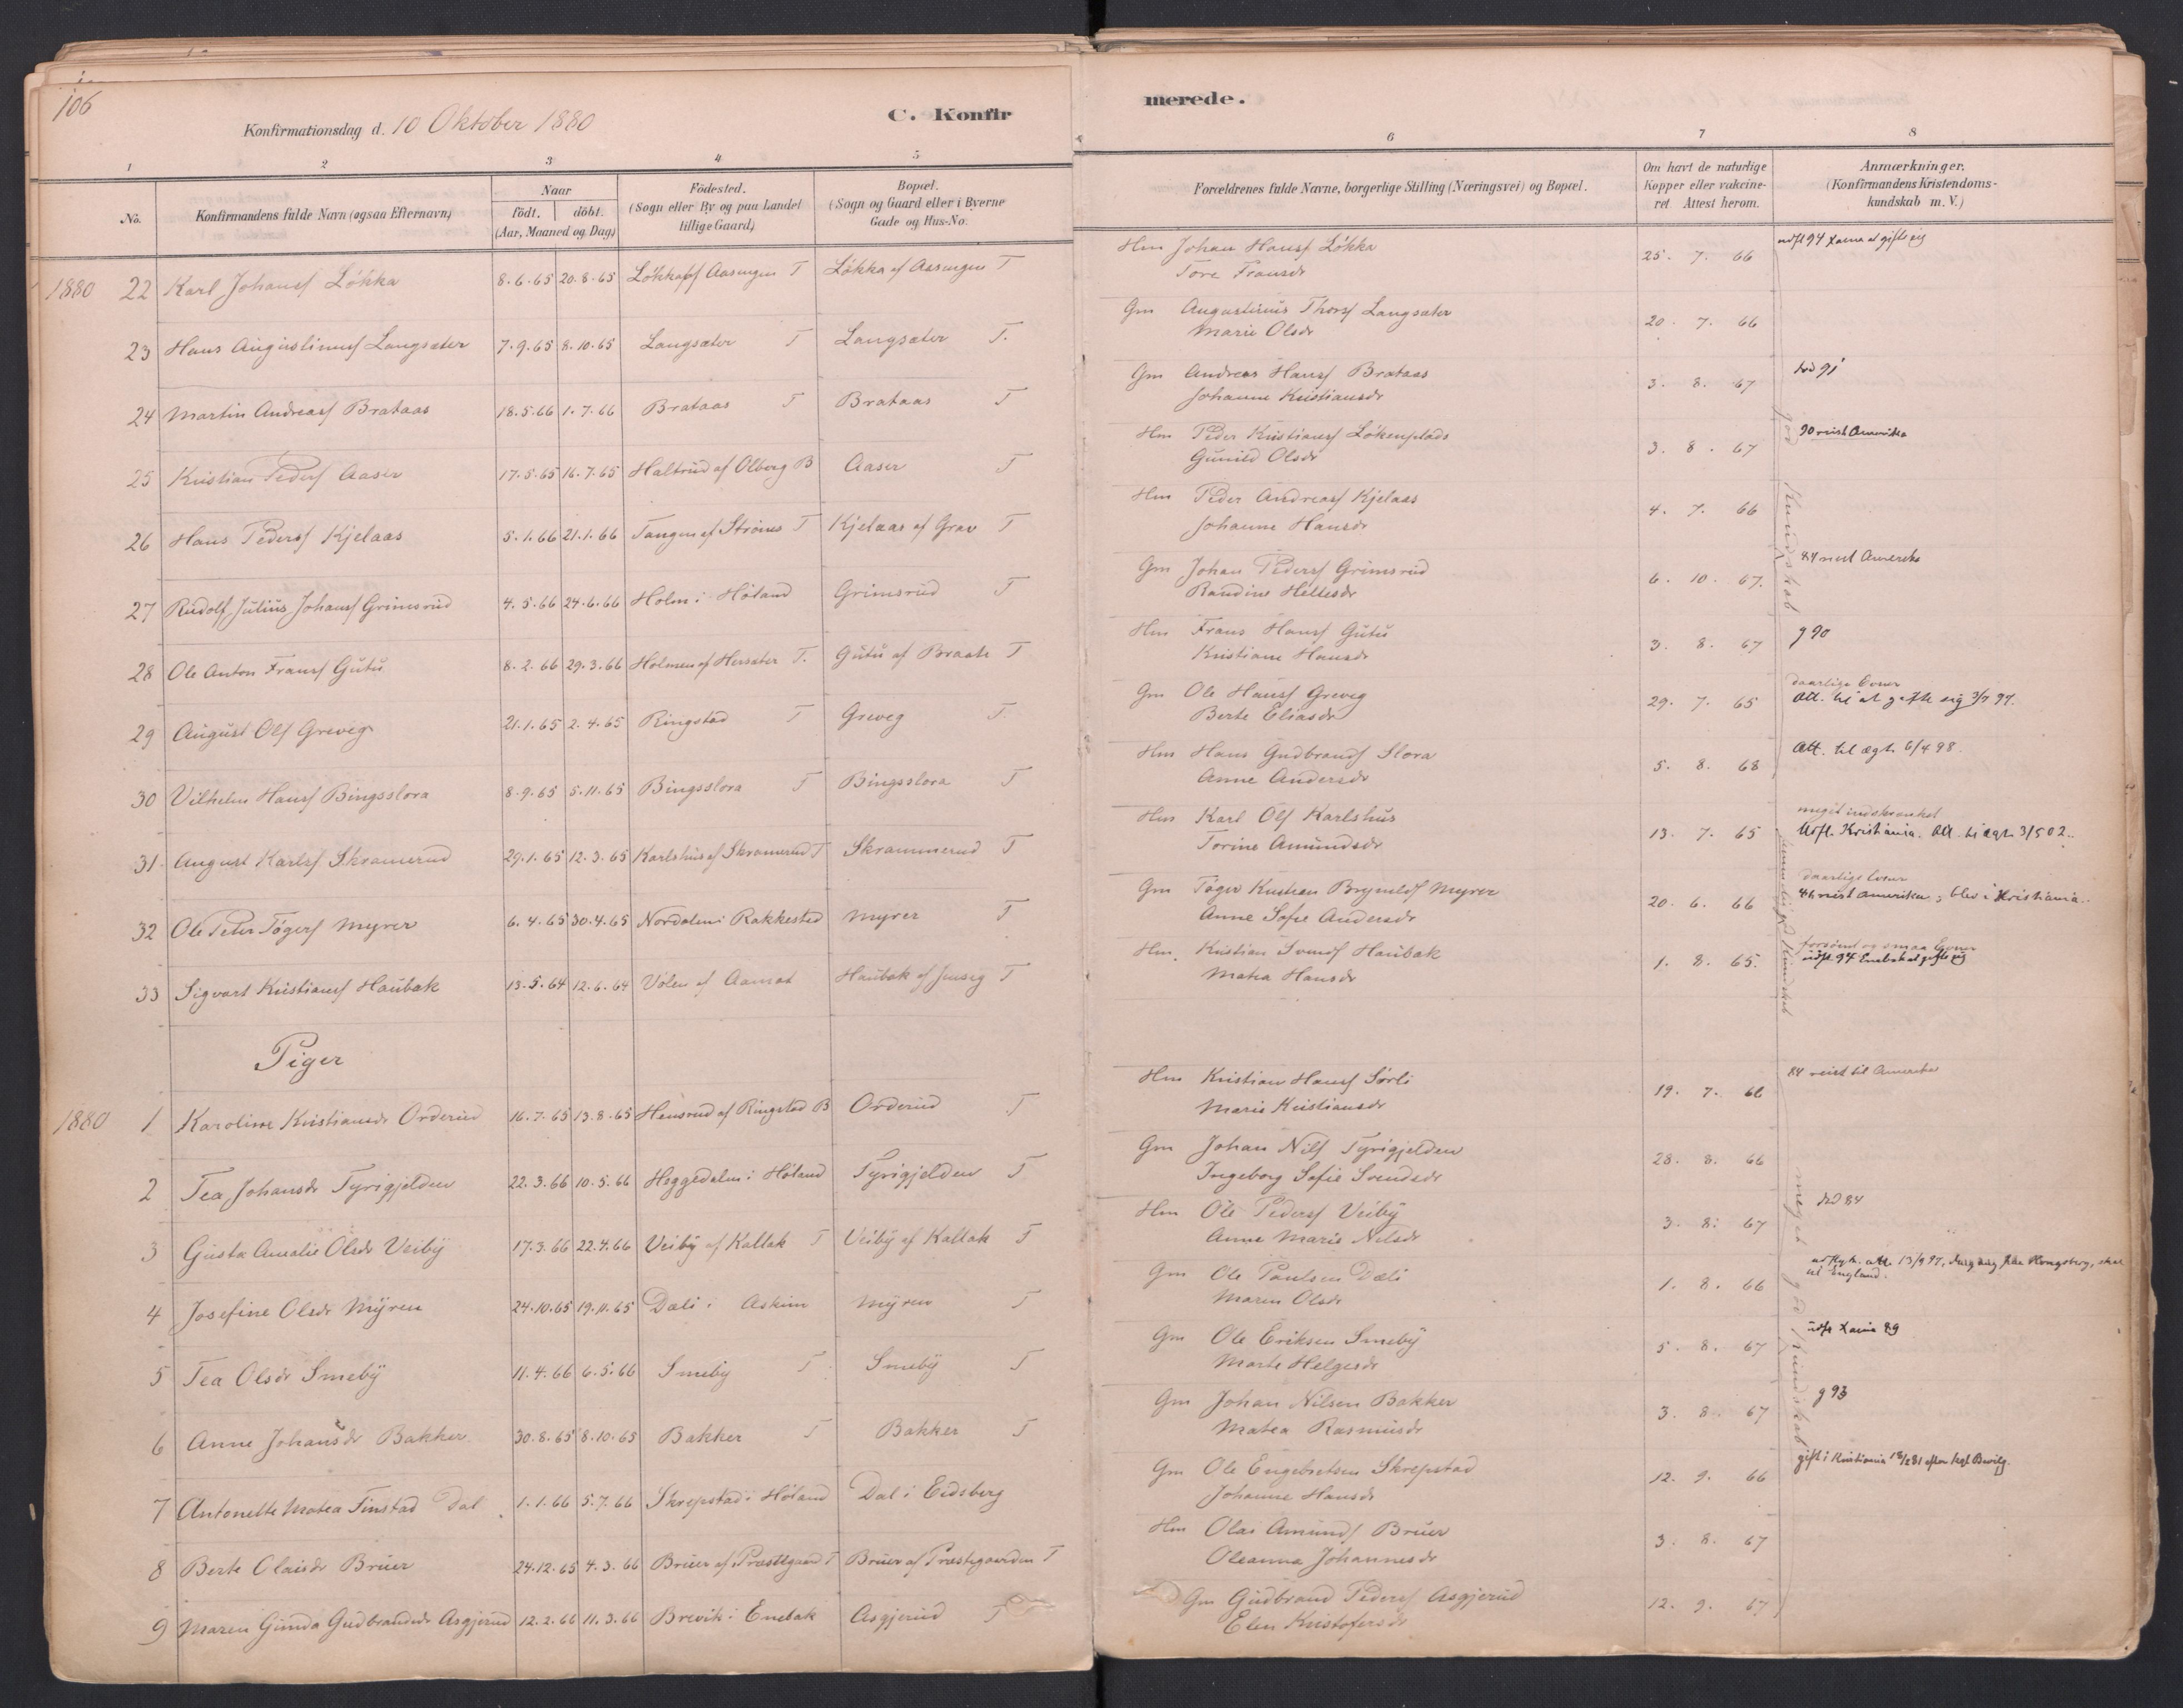 106
Konfirmationsdag d. 10 Oktober 1880
C. Konfir
merede.
1 2 3 4 5 6 7 8
No.
Konfirmandens fulde Navn (ogsaa Efternavn)
Naar
født, døbt.
(Aar, Maaned og Dag)
Födested.
(Sogn eller By og paa Landet
tillige Gaard)
Bopæl.
(Sogn og Gaard eller i Byerne
Gade og Hus-No.
Forældrenes fulde Navne, borgerlige Stilling (Næringsvei) og Bopæl.
Om havt de naturlige
Kopper eller vakcine-
ret. Attest herom.
Anmærkninger.
(Konfirmandens Kristendoms-
kundskab m. V.)
1880 22 Karl Johansf Løkka 8.6.65 20.8.65 Løkka af Aasengen T Løkka af Aasengen T Hm Johan Hansf Løkka 25. 7. 66
Tore Fransdr
23 Hans Augustinusf Langsæter 7.9.65 8.10.65 Langsæter T Langsæter T. Gm Augustinus Thorsf Langsæter 20. 7. 66
Marie Olsdr
24 Martin Andreasf Brataas 18.5.66 1.7.66 Brataas T Brataas T Gm Andreas Hansf Brataas 3. 8. 67 død 91
Johanne Kristiansdr
25 Kristian Pedersf Aaser 17.5.65 16.7.65 Haltrud af Olberg B Aaser T Hm Peder Kristiansf Løkenplads 3. 8. 67 90 reist Amerika
Gunild Olsdr
26 Hans Pedersf Kjelaas 5.1.66 21.1.66 Tangen af Strønes T Kjelaas af Grav T Hm Peder Andreasf Kjelaas 4. 7. 66
Johanne Hansdr
27 Rudolf Julius Johansf Grimsrud 4.5.66 24.6.66 Holm i Høland Grimsrud T Gm Johan Pedersf Grimsrud 6. 10. 67. 84 reist Amerika
Randine Hellesdr
28 Ole Anton Fransf Gutu 8.2.66 29.3.66 Holmen af Hersæter T. Gutu af Braate T Hm Frans Hansf Gutu 3. 8. 67 g 90
Kristiane Hansdr
29 August Olsf Greveg 21.1.65 2.4.65 Ringstad T Greveg T. Gm Ole Hansf Greveg 29. 7. 65 daarlige Evner
Berte Eliasdr Att. til at gifte sig 3/7 97.
30 Vilhelm Hansf Bingsslora 8.9.65 5.11.65 Bingsslora T Bingsslora T Hm Hans Gudbrandsf Slora 5. 8. 68 Att. til ægt. 6/4 98.
Anne Andersdr
31 August Karlsf Skramerud 29.1.65 12.3.65 Karlshus af Skramerud T Skrammerud T Hm Karl Olsf Karlshus 13. 7. 65 meget indskrænket
Torine Amundsdr Udfl. Kristiania. Att. til ægt. 3/5 02.
32 Ole Peter Tøgersf Myrer 6.4.65 30.4.65 Nordalen i Rakkestad Myrer T Gm Tøger Kristian Brynildsf Myrer 20. 6. 66 daarlige Evner
Anne Sofie Andersdr reist Amerika; blev i Kristiania.
33 Sigvart Kristiansf Haubak 13.5.64 12.6.64 Volen af Aamot Haubak af T Hm. Kristian Svendsf Haubak 1. 8. 65. forsømt og smaa Evner
Matea Hansdr udfl 94 Enebak at gifte sig
god Kundskab
Piger
1880 1 Karoline Kristiansdr Orderud 16.7.65 13.8.65 Hensrud af Ringstad B Orderud T Hm Kristian Hansf Sørli 19. 7. 66 84 reist til Amerika
Marie Kristiansdr
2 Tea Johansdr Tyrigjelden 22.3.66 10.5.66 Heggedalen i Høland Tyrigjelden T Gm Johan Nilsf Tyrigjelden 28. 8. 66
Ingeborg Sofie Svendsdr
3 Gusta Amalie Olsdr Veiby 17.3.66 22.4.66 Veiby af Kallak T Veiby af Kallak T Hm Ole Pedersf Veiby 3. 8. 67 død 84
Anne Marie Nilsdr
4 Josefine Olsdr Myren 24.10.65 19.11.65 Dæli i Askim Myren T Gm Ole Paulsen Dæli 1. 8. 66
Maren Olsdr til England.
5 Tea Olsdr Smeby 11.4.66 6.5.66 Smeby T Smeby T Gm Ole Eriksen Smeby 5. 8. 67 udfl Xania 89
Marte Helgesdr
6 Anne Johansdr Bakker 30.8.65 8.10.65 Bakker T Bakker T Gm Johan Nilsen Bakker 3. 8. 67 g 93
Matea Rasmusdr
7 Antonette Matea Finstad Dal 1.1.66 5.7.66 Skrepstad i Høland Dal i Eidsberg Gm Ole Engebretsen Skrepstad 12. 9. 66
Johanne Hansdr
8 Berte Olaisdr Bruer 24.12.65 4.3.66 Bruer af Prestegaard T Bruer af Prestegaarden T Hm Olai Amundsf Bruer 3. 8. 67
Oleanna Johannesdr
9 Maren Gunda Gudbrandsdr Asgjerud 12.2.66 11.3.66 Brevik i Enebak Asgjerud T Gm Gudbrand Pedersf Asgjerud 12. 9. 67
Elen Kristofersdr
meget god Kundskab